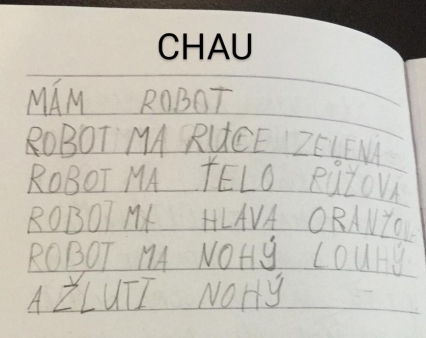 CHAU
MÁM ROBOT
ROBOT MA RUCE ZELENA
ROBOT MA ŤELO RŮŽOVA
ROBOT MA HLAVA ORANŽOV
ROBOT MA NOHÝ LOUHÝ
A ŽLUTI NOHÝ